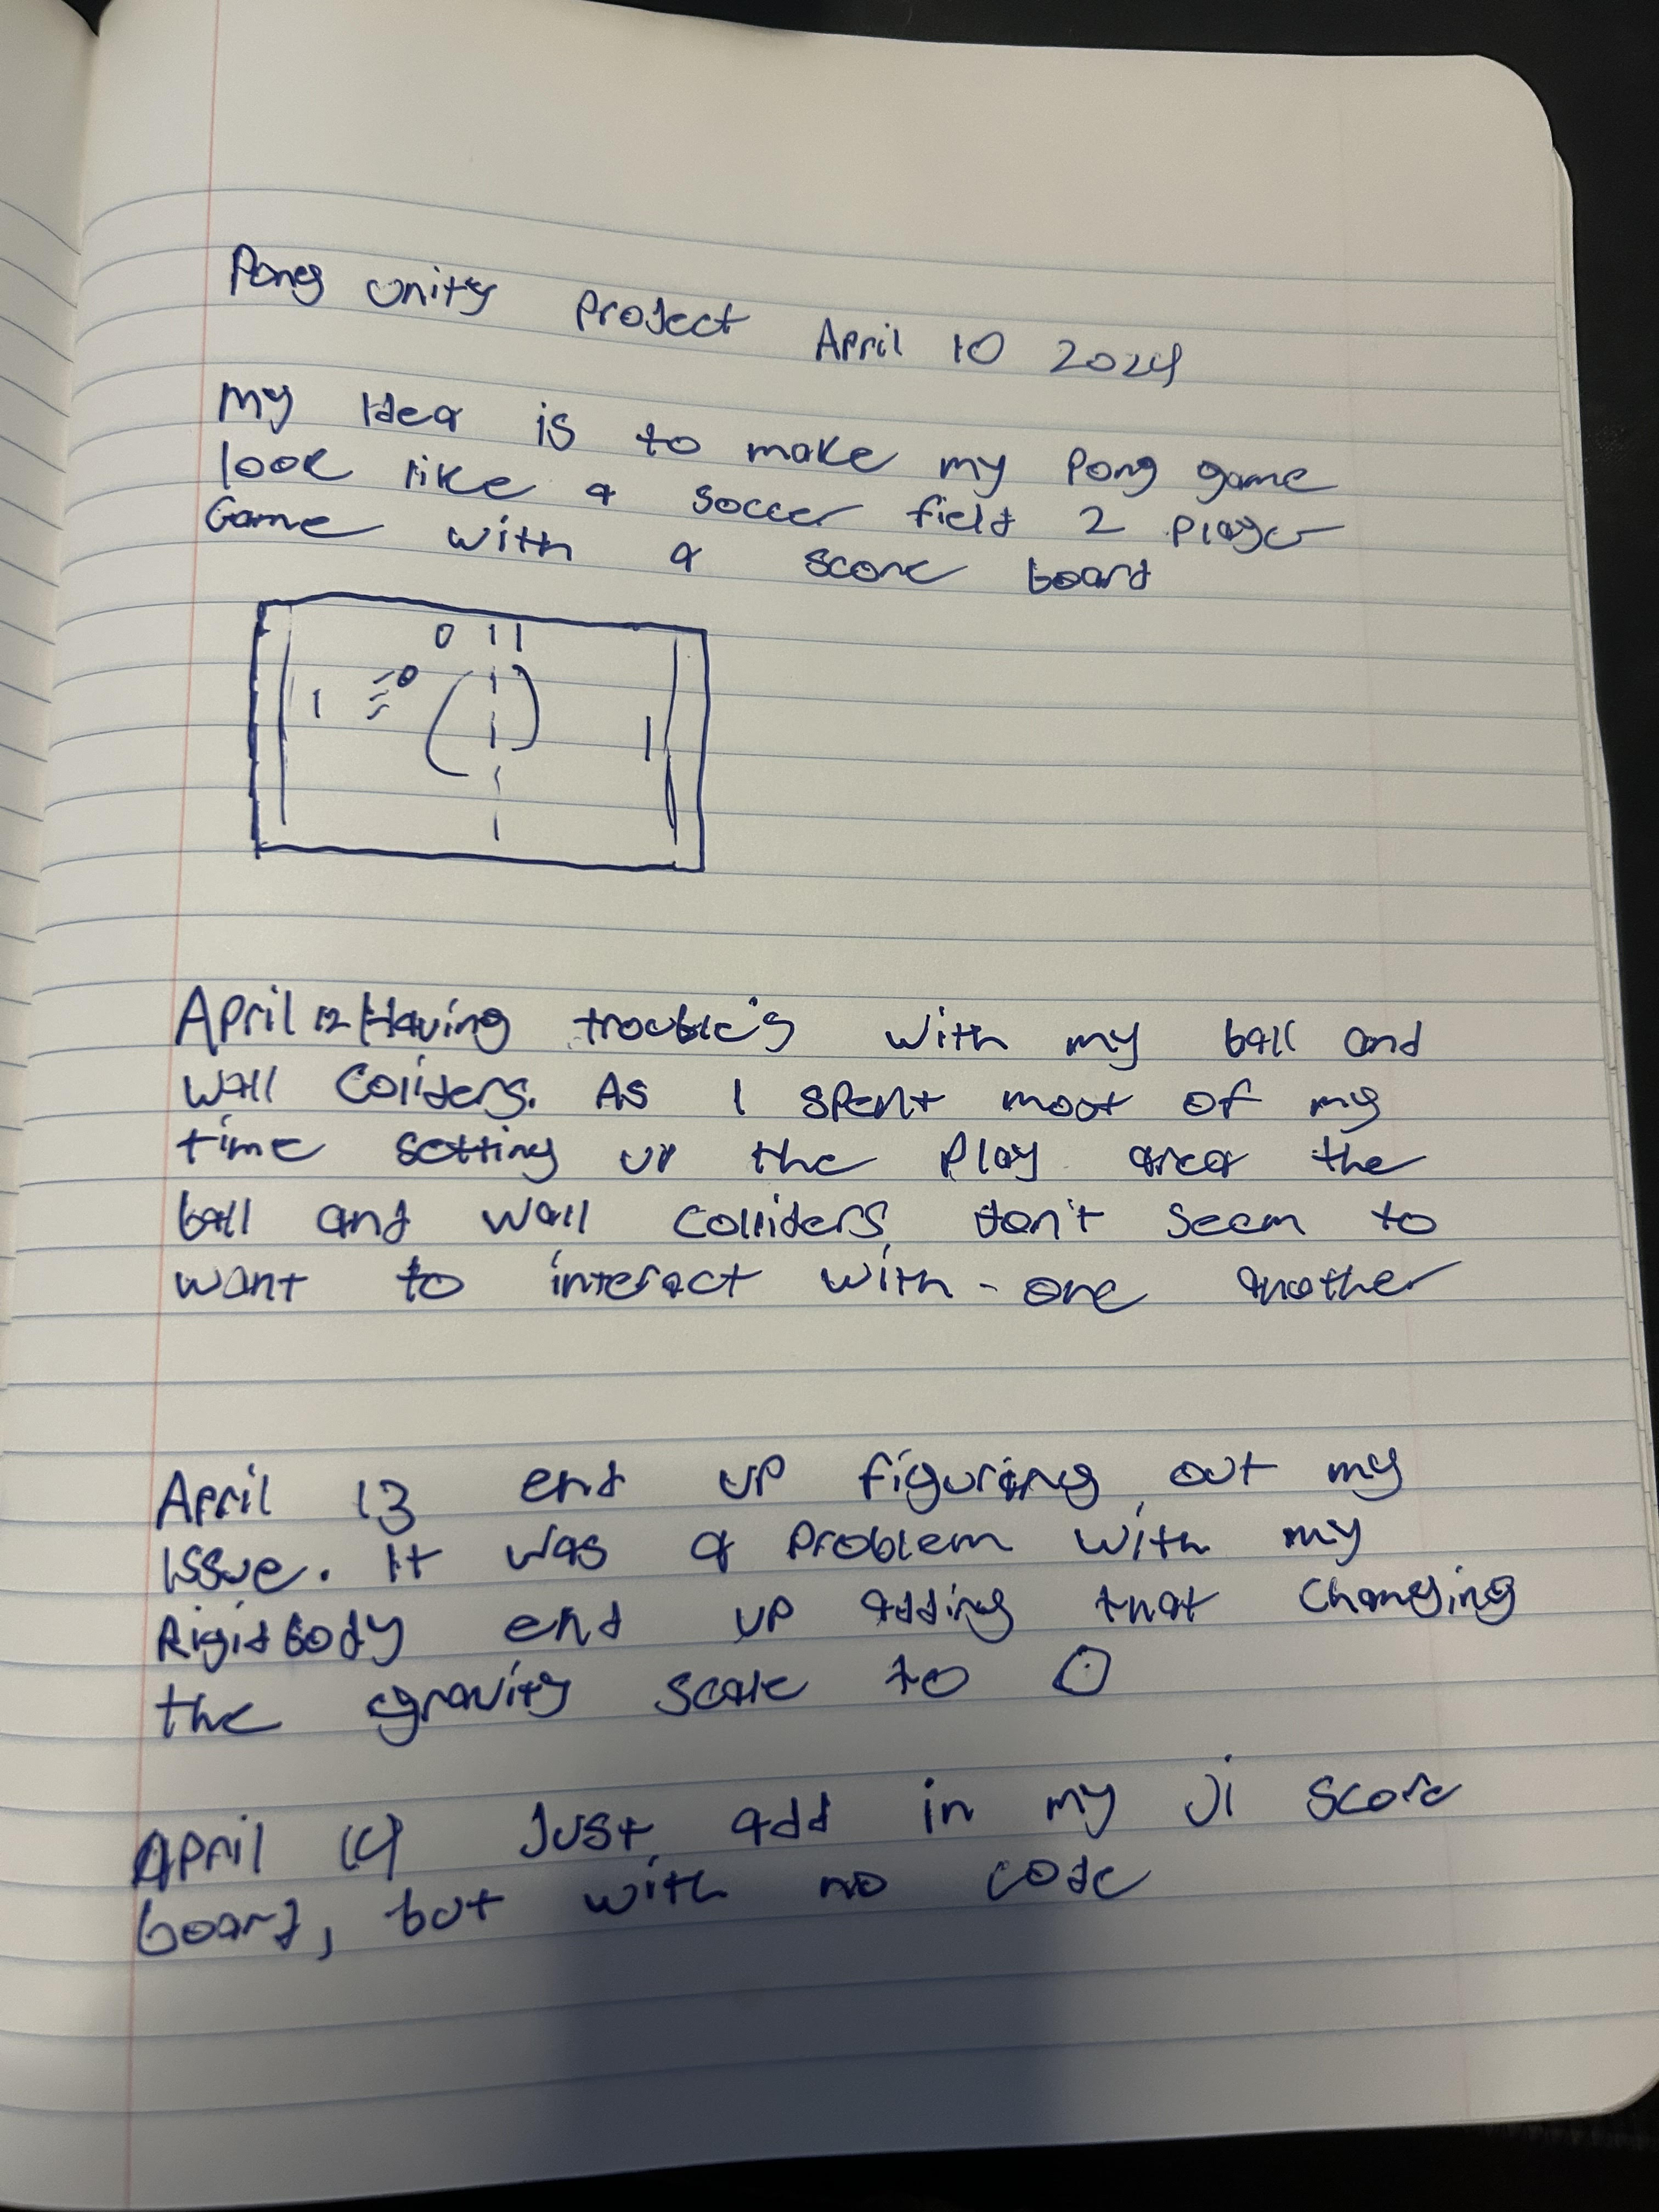 Pong Unity Project April 10 2024
My Idea is to make my Pong game
look like a soccer field 2 player
Game with a score board
0 1 1
April 12 Having trouble's with my ball and
wall Coliders. As I spent most of my
time setting up the Play area the
ball and wall Colliders don't seem to
want to interact with - one another
April 13 end up figuring out my
Issue. It was a Problem with my
Rigidbody end up adding that Changing
the gravity scale to 0
April 14 Just add in my Ui score
board, but with no code